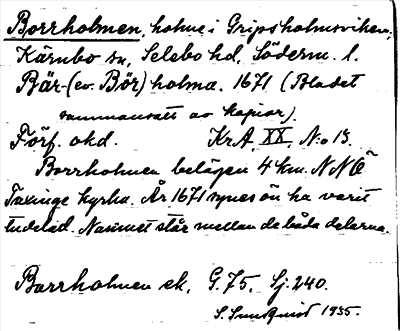 Borrholmen, holme i Gripsholmsviken,
Kärnbo sn, Selebo hd, Söderm. l.
Bär- (ev. Bör) holma. 1671 (Bladet
sammansatt av kopior).
Förf. okd. KrA, XX, N:o 13.
Borrholmen belägen 4 km. NNÖ
Taxinge kyrka. År 1671 synes ön ha varit
tudelad. Namnet står mellan de båda delarna.
Borrholmen ek. G. 75, Sj. 240.
S. Sundquist 1935.